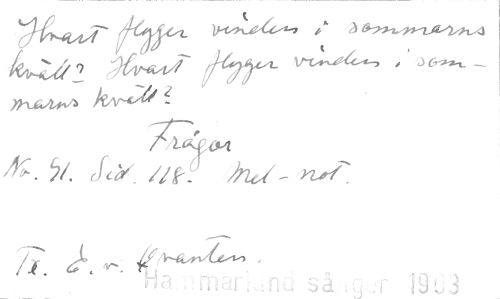 Hvart flyger vinden i sommarns
kväll? Hvart flyger vinden i som-
marns kväll?
Frågor
No. 51. Sid. 118. Mel-not.
Tx. E. v. Qvanten.
Hammarlund sånger 1903